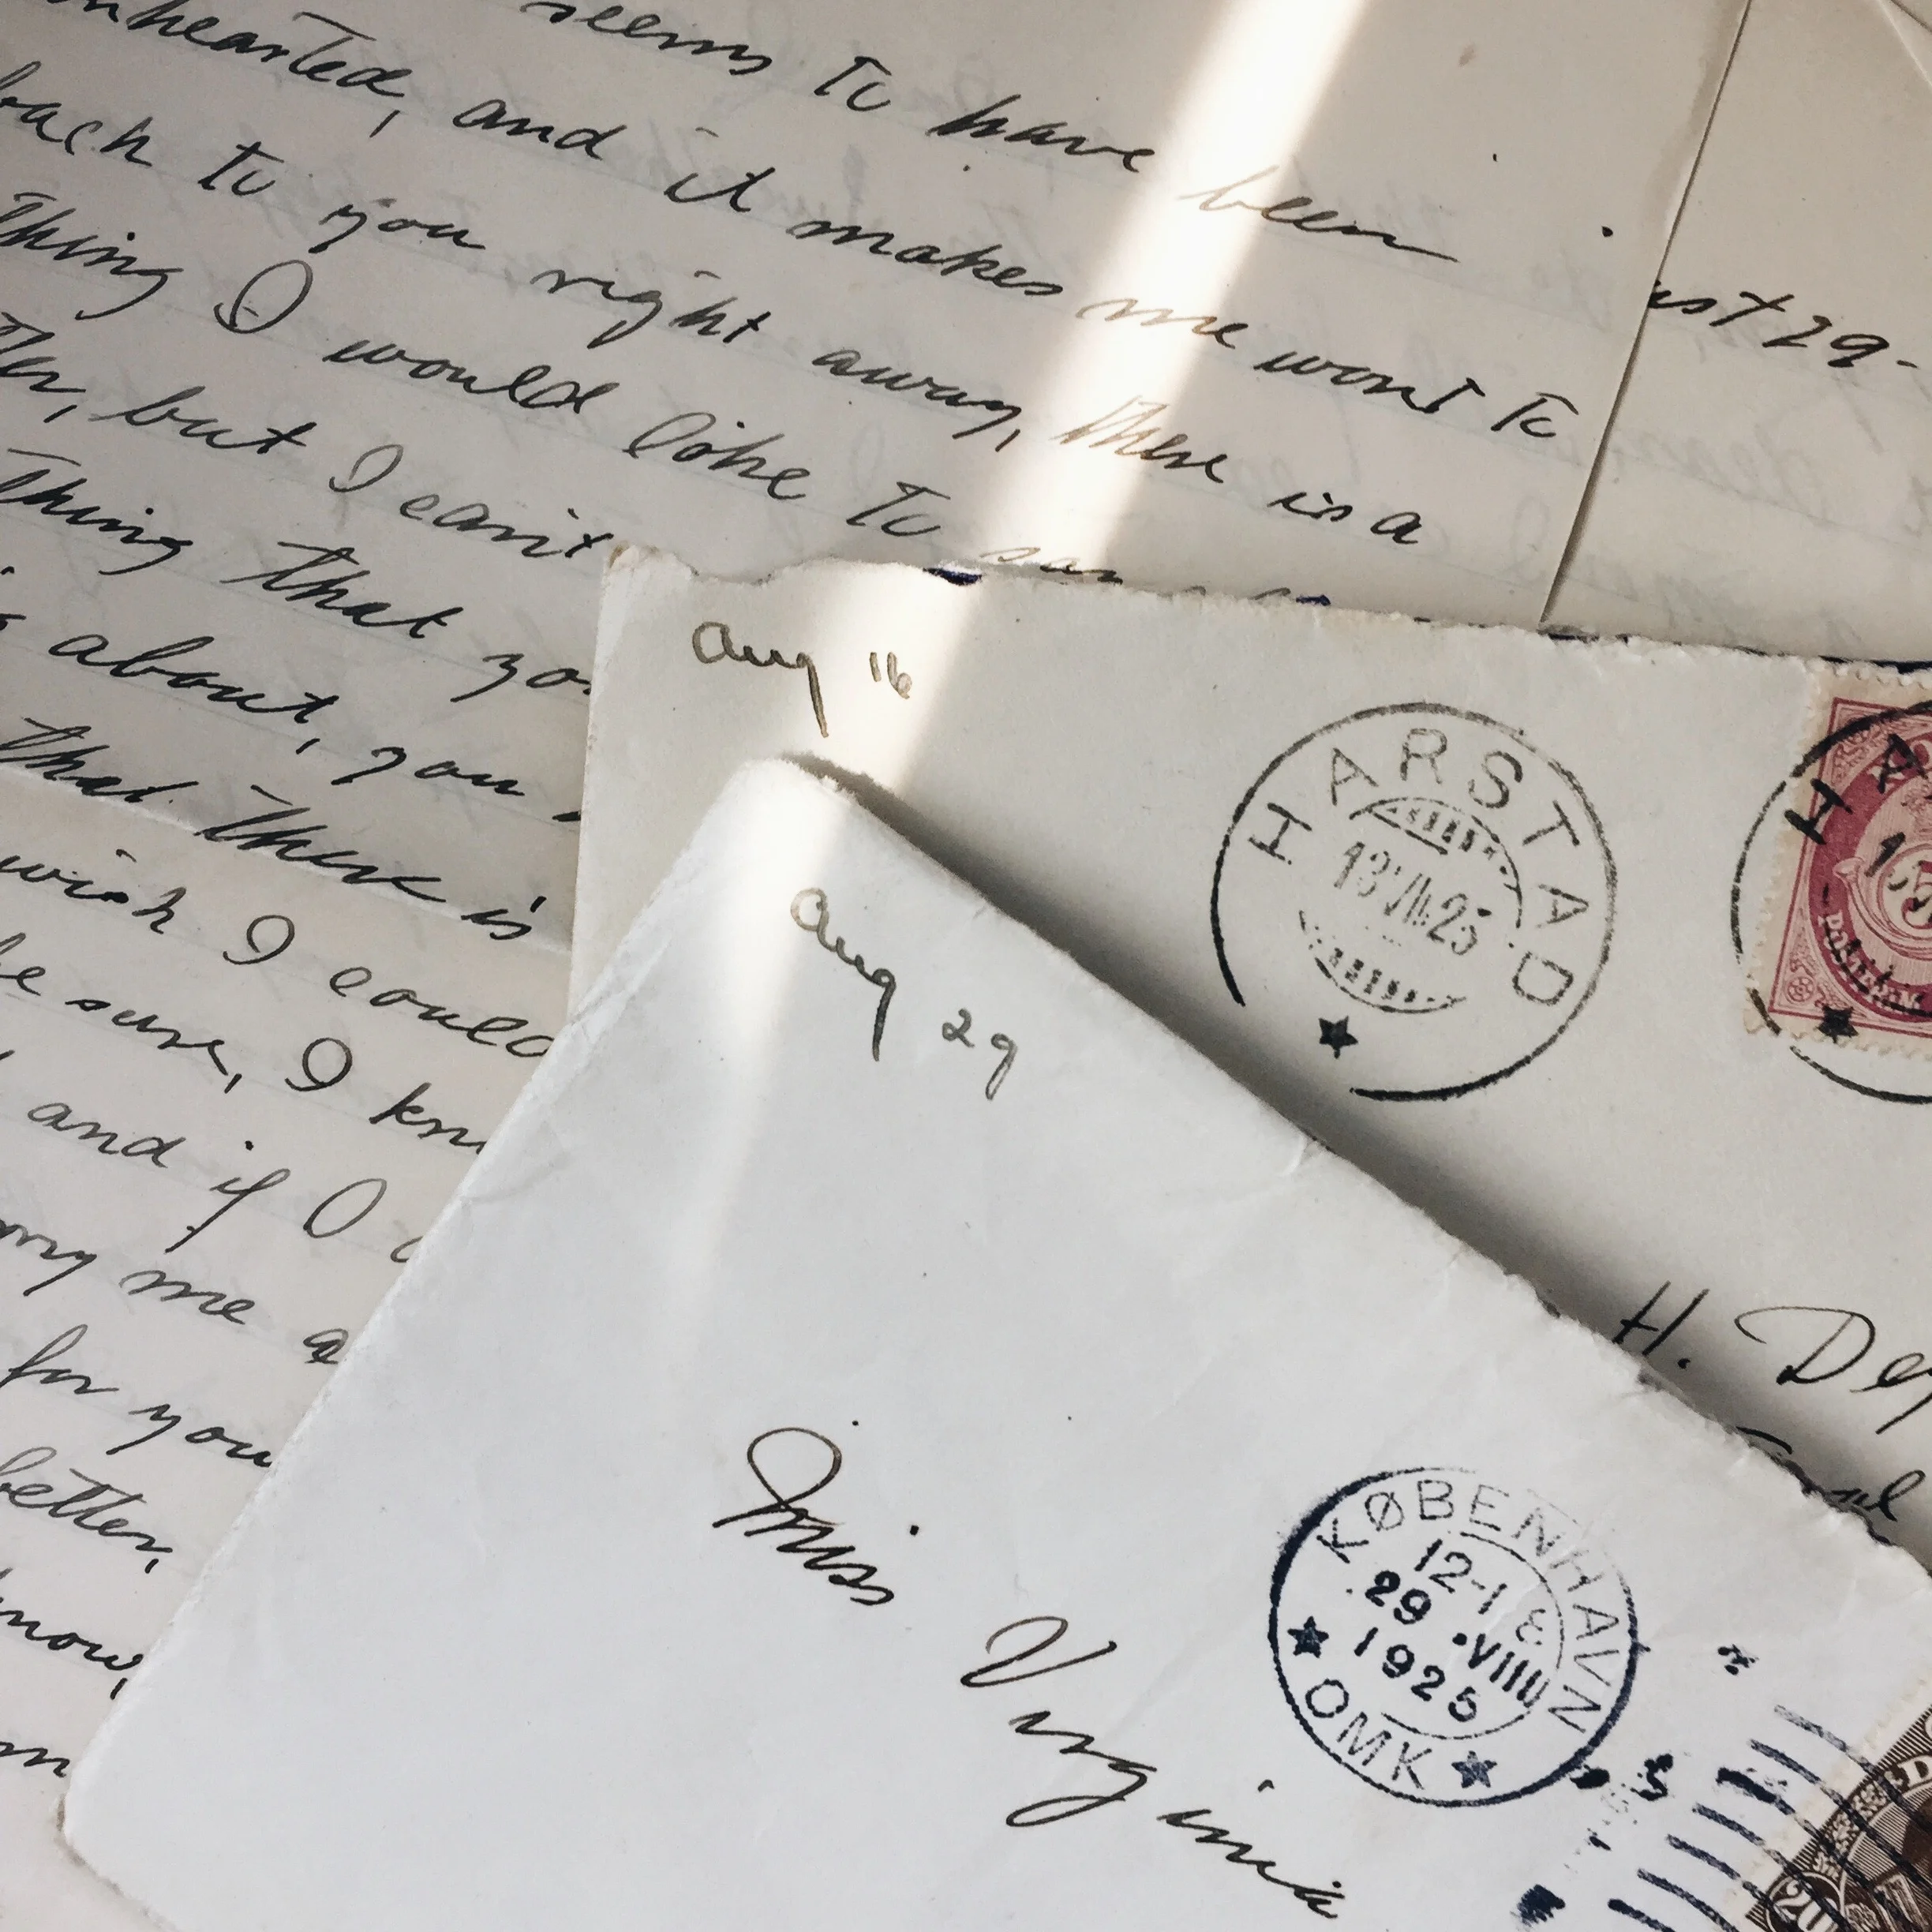 seems to have been
hearted, and it makes me want to
back to you right away, there is a
thing I would like to
but I can't
thing that
about, you
that there is
wish I could
be sure, I
and if I
me a
for you
better,
know,
29-
Aug 16
HARSTAD
13 VIII 25
H.
Aug 29
Miss Virginia
KØBENHAVN
12-1 E
29.VIII
1925
OMK
20